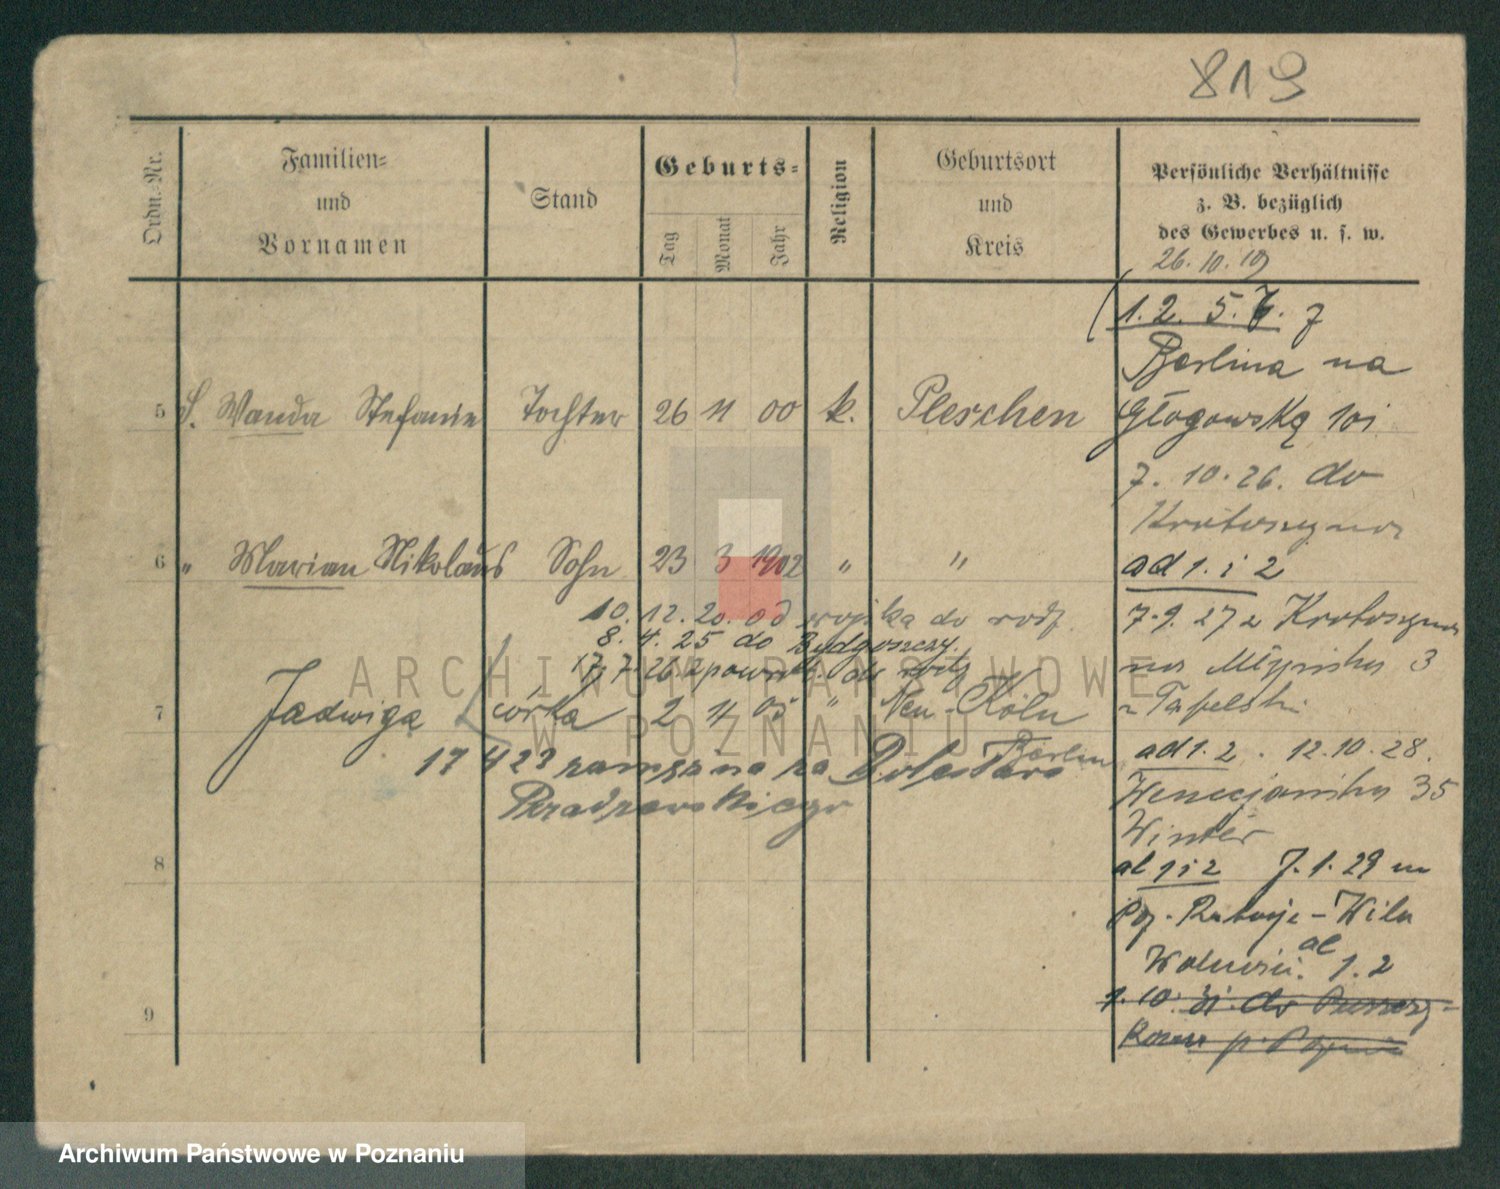 819
Ordn.-Nr.
Familien-
und
Vornamen
Stand
Geburts-
Tag
Monat
Jahr
Religion
Geburtsort
und
Kreis
Persönliche Verhältnisse
z. B. bezüglich
des Gewerbes u. s. w.
26. 10. 19
1. 2. 5. 7
Berlina na
5 S. Wanda Stefanie Tochter 26 11 00 k. Pleschen
Głogowską 101
7. 10. 26. do
Krotoszyna
6 " Marian Nikolaus Sohn 23 3 1902 " "
ad 1. i 2
10. 12. 20. od wojska do rodz.
7. 9. 27 z Krotoszyna
8. 4. 25 do Bydgoszczy.
17. 7. 26. z powrot. do rodz
na Młyńska 3
7 Jadwiga córka 2 11 05 " Neu-Köln
Berlin
ad 1. 2. 12. 10. 28.
17 4 23 zamężna za Bolesława
Wenecjańska 35
Winter
8
al 1 i 2 7. 1. 29 na
Wila
al 1. 2
1. 10. 31. do
9
ARCHIWUM PAŃSTWOWE
W POZNANIU
Archiwum Państwowe w Poznaniu